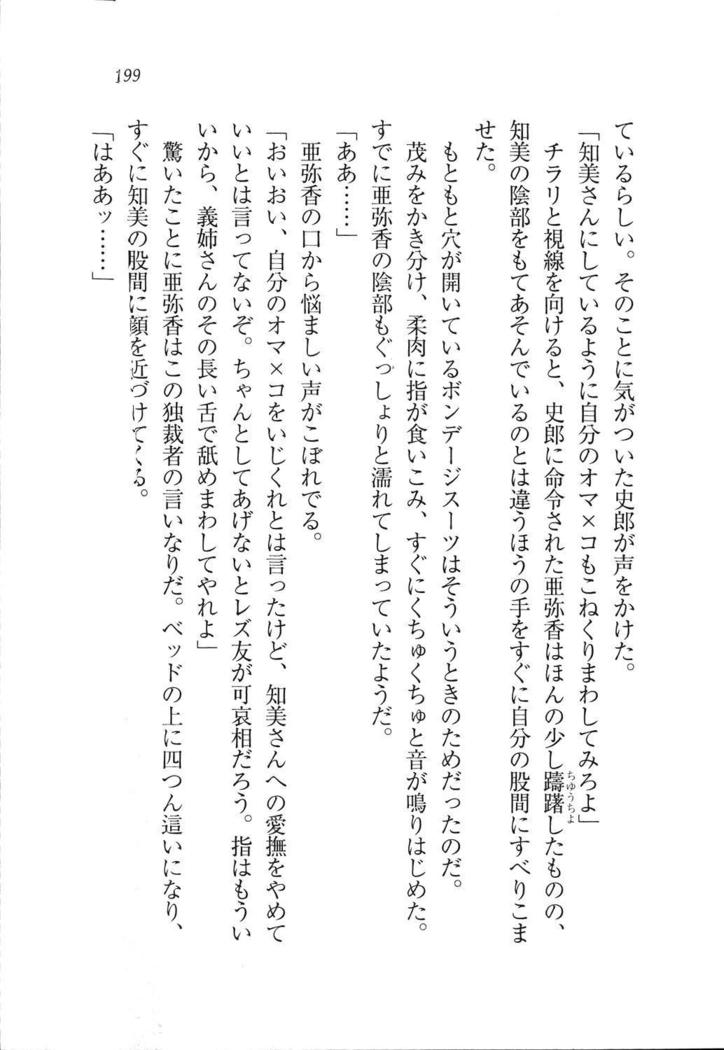 199
ているらしい。そのことに気がついた史郎が声をかけた。
「知美さんにしているように自分のオマ×コもこねくりまわしてみろよ」
チラリと視線を向けると、史郎に命令された亜弥香はほんの少し躊躇したものの、
ちゆうちよ
知美の陰部をもてあそんでいるのとは違うほうの手をすぐに自分の股間にすべりこま
せた。
もともと穴が開いているボンデージスーツはそういうときのためだったのだ。
茂みをかき分け、柔肉に指が食いこみ、すぐにくちゅくちゅと音が鳴りはじめた。
すでに亜弥香の陰部もぐっしょりと濡れてしまっていたようだ。
「ああ……」
亜弥香の口から悩ましい声がこぼれでる。
「おいおい、自分のオマ×コをいじくれとは言ったけど、知美さんへの愛撫をやめて
いいとは言ってないぞ。ちゃんとしてあげないとレズ友が可哀相だろう。指はもうい
いから、義姉さんのその長い舌で舐めまわしてやれよ」
驚いたことに亜弥香はこの独裁者の言いなりだ。ベッドの上に四つん這いになり、
すぐに知美の股間に顔を近づけてくる。
「はああッ……」